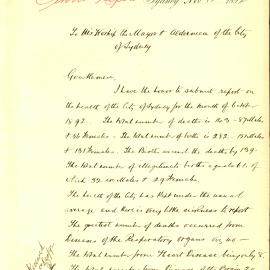 Sydney Nov 1892
To His Worship the Mayor & Aldermen of the City
of Sydney
Gentlemen,
I have the honor to submit report on
the health of the City of Sydney for the month of
1892. The total number of deaths is 143 - 87 Males
& 56 Females. The total number of births is 282.
& 131 Females. The Births exceed the deaths by 139.
The total number of illegitimate births equals 61 of
which 32 are Males & 29 Females.
The health of the City has kept under the usual
average and there is very little sickness to report
The greatest number of deaths occurred from
Diseases of the Respiratory Organs viz. no -
The total number from Heart Disease being only 8.
The total number from Diseases of the Brain